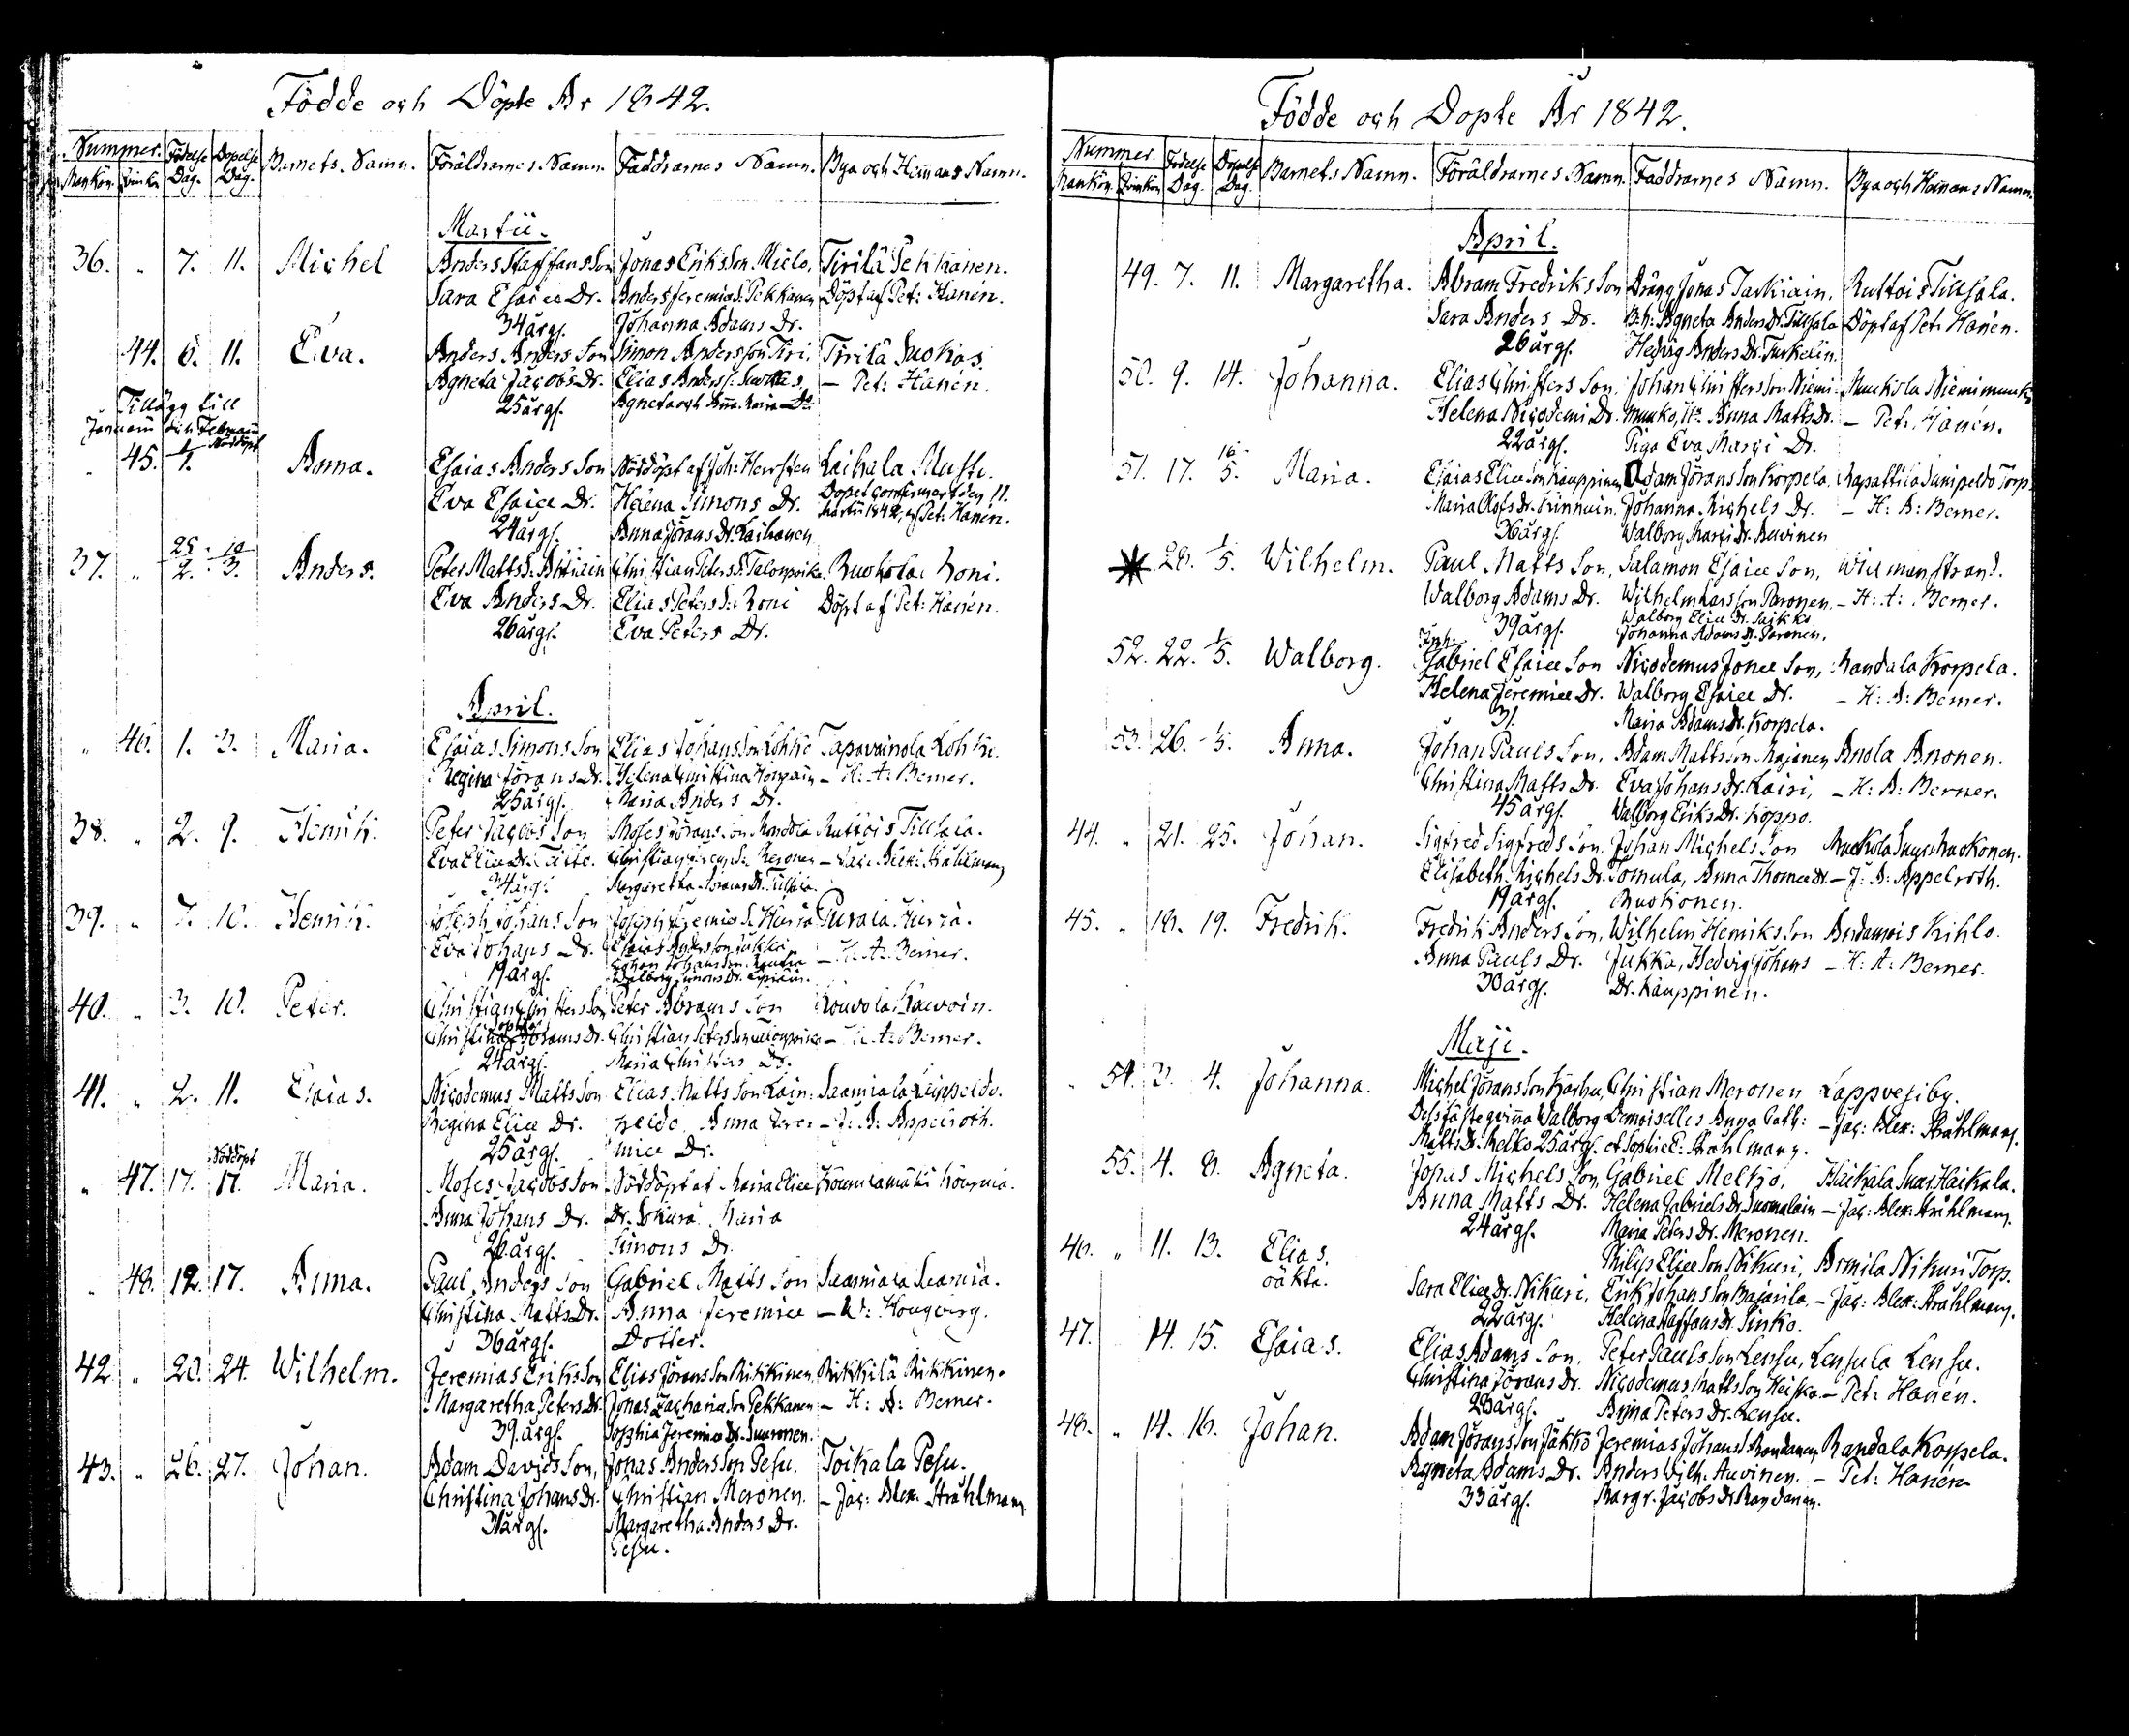 Födde och Döpte År 1842.
Nummer. Födelse Döpelse Barnets Namn. Föräldrarnes Namn. Faddrarnes Namn. Bya och Hemans Namn.
Mankön. Qvinkön Dag. Dag.
Martii.
36. " 7. 11. Michel Anders Staffans Son Jonas Eriksson Mielo, Tirilä Pekkanen.
Sara Esaiæ Dr. Anders Jeremiæ S. Pekkanen Döpt af Pet: Hanén.
34 årg. Johanna Adams Dr.
44. 6. 11. Eva. Anders Anders Son Simon Andersson Tiri, Tirilä Suokas.
Agneta Jacobs Dr. Elias Anderss: Suokas, – Pet: Hanén.
25 årg. Agneta och Anna Maria Dr
Tillägg till
Januarii och Februarii
" 45. 1/1. Nöddöpt Anna. Esaias Anders Son Nöddöpt af Joh: Herr Sten Laihala Must.
Eva Esaiæ Dr. Helena Simons Dr. Dopet confirmert den 11.
24 årg. Anna Jörans Dr. Laihanen Martii 1842, af Pet: Hanén.
37. " 25/2. 10/3. Anders. Peter Matts S. Christian Peters S. Talonpoika. Ruohola Roni.
Eva Anders Dr. Elias Peters S. Roni Döpt af Pet: Hanén.
26 årg. Eva Peters Dr.
April.
" 46. 1. 3. Maria. Esaias Simons Son Elias Johans Son Lohko Tapavainola Lohko.
Regina Jörans Dr. Helena Christina – H: A: Berner.
25 årg. Maria Anders Dr.
38. " 2. 9. Henrik. Peter Jacobs Son Moses Jörans Son Ruttois Tillsala.
Eva Eliæ Dr. Christian Meronen – Jac: Alex: Strahlmann
34 årg. Margaretha Abrams Dr. Tillsala.
39. " 7. 10. Henrik. Joseph Johans Son Joseph Jeremiæ S. Hursa Purala Hursa.
Eva Johans Dr. Esaias Anders Son Jukka – H: A: Berner.
19 årg. Johan Johansson Rautia
Walborg Simons Dr.
40. " 3. 10. Peter. Christian Christers Son Peter Abrams Son Kouvola Kauvoin.
Christina Sophia Abrams Dr. Christian Peters Son Talonpoika – H: A: Berner.
24 årg. Maria Christers Dr.
41. " 2. 11. Esaias. Nicodemus Matts Son Elias Matts Son Lein: Saamiala Leinpeldo.
Regina Eliæ Dr. peldo, Anna Jere– – J: A: Appelroth.
25 årg. miæ Dr.
" 47. 17. Nöddöpt 17. Maria. Moses Jacobs Son Nöddöpt af Maria Eliæ Kourulamäki Kouruia.
Anna Johans Dr. Dr. Maria
26 årg. Simons Dr.
" 48. 12. 17. Anna. Paul Anders Son Gabriel Matts Son Saamiala Saamia.
Christina Matts Dr. Anna Jeremiæ – W: Hougberg.
36 årg. Dotter.
42. " 20. 24. Wilhelm. Jeremias Eriks Son Elias Jörans Son Rikkinen, Rikkilä Rikkinen.
Margaretha Peters Dr. Jonas Zachariæ Son Pekkanen – H: A: Berner.
39 årg. Sophia Jeremiæ Dr. Suuronen.
43. " 26. 27. Johan. Adam Davids Son, Jonas Anders Son Pesu, Toikala Pesu.
Christina Johans Dr. Christian Meronen. – Jac: Alex: Strahlmann
31 årg. Margaretha Anders Dr.
Pesu.
Födde och Dopte År 1842.
Nummer. Födelse Döpelse Barnets Namn. Föräldrarnes Namn. Faddrarnes Namn. Bya och Hemans Namn.
Mankön. Qvinkön Dag. Dag.
April.
49. 7. 11. Margaretha. Abram Fredriks Son Dräng Jonas Taskiain, Ruttois Tillsala.
Sara Anders Dr. B.h: Agneta Anders Dr. Tillsala Döpt af Pet: Hanén.
26 årg. Hedvig Anders Dr. Turkelin.
50. 9. 14. Johanna. Elias Christers Son, Johan Christers Son Niemi– Muukola Niemimuuko
Helena Nicodemi Dr. muuko, Anna Matts Dr. – Pet: Hanén.
22 årg. Piga Eva Marci Dr.
51. 17. 16/5. Maria. Esaias Eliæ Son Kauppinen Adam Jörans Son Korpela, Rapattila Torp.
Maria Olofs Dr. Johanna Michels Dr. – H: A: Berner.
36 årg. Walborg Marci Dr. Auvinen
28. 1/5. Wilhelm. Paul Matts Son, Salamon Esaiæ Son, Willmanstrand.
Walborg Adams Dr. Wilhelm Larsson Paronen, – H: A: Berner.
39 årg. Walborg Eliæ Dr. Suikko
Johanna Adams Dr. Paronen.
52. 22. 1/5. Walborg. Inh: Gabriel Esaiæ Son Nicodemus Jonæ Son, Randala Korpela.
Helena Jeremiæ Dr. Walborg Esaiæ Dr. – H: A: Berner.
31. Maria Adams Dr. Korpela.
53. 26. 1/5. Anna. Johan Pauls Son, Adam Mattsson Majanen Anola Anonen.
Christina Matts Dr. Eva Johans Dr. Kaisi, – H: A: Berner.
45 årg. Walborg Eriks Dr. Koppo.
44. " 21. 25. Johan. Sigfred Sigfreds Son, Johan Michels Son Ruohola Suur Ruokonen.
Elisabeth Michels Dr. Tomula, Anna Thomæ Dr. – J: A: Appelroth.
19 årg. Ruokonen.
45. " 18. 19. Fredrik. Fredrik Anders Son, Wilhelm Henriks Son Andamois Kihlo.
Anna Pauls Dr. Jukka, Hedvig Johans – H: A: Berner.
30 årg. Dr. Kauppinen.
Maji.
" 54. 3. 4. Johanna. Michel Jörans Son Karhu, Christian Meronen Lappvesi by.
Dess fästeqvinna Walborg Demoiselles Anna Cath: – Jac: Alex: Strahlmann.
Matts Dr. Melko 25 årg. et Sophie E: Strahlmann.
55. 4. 8. Agneta. Jonas Michels Son, Gabriel Meltjo, Haikala Suur Haikala.
Anna Matts Dr. Helena Gabriels Dr. Suomalain – Jac: Alex: Strahlmann.
24 årg. Maria Peters Dr. Meronen.
46. " 11. 13. Elias, Philip Eliæ Son Nikuri, Armila Nikuri Torp.
oäkta. Sara Eliæ Dr. Nikuri, Erik Johans Son Majarila, – Jac: Alex: Strahlmann.
22 årg. Helena Staffans Dr. Sinko.
47. 14. 15. Esaias. Elias Adams Son, Peter Pauls Son Lensu, Lensula Lensu.
Christina Jörans Dr. Nicodemus Matts Son Heiska – Pet: Hanén.
28 årg. Anna Peters Dr. Lensu.
48. " 14. 16. Johan. Adam Jörans Son Jäkkö Jeremias Johans S. Randanen Randala Korpela.
Agneta Adams Dr. Anders Wilh: Auvinen. – Pet: Hanén
33 årg. Margr. Jacobs Dr Randanen.